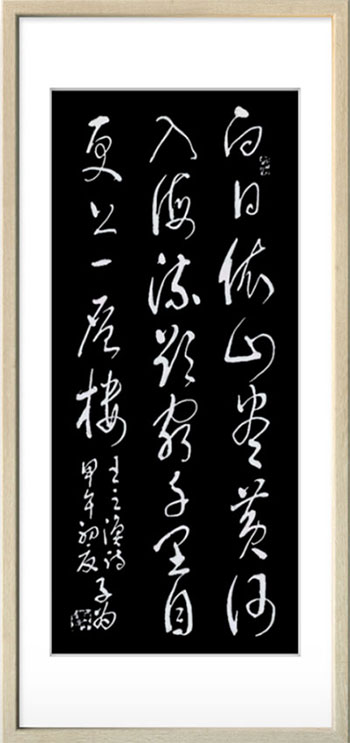 白日依山盡黃河
入海流欲窮千里目
更上一層樓
王之渙詩
甲午初夏